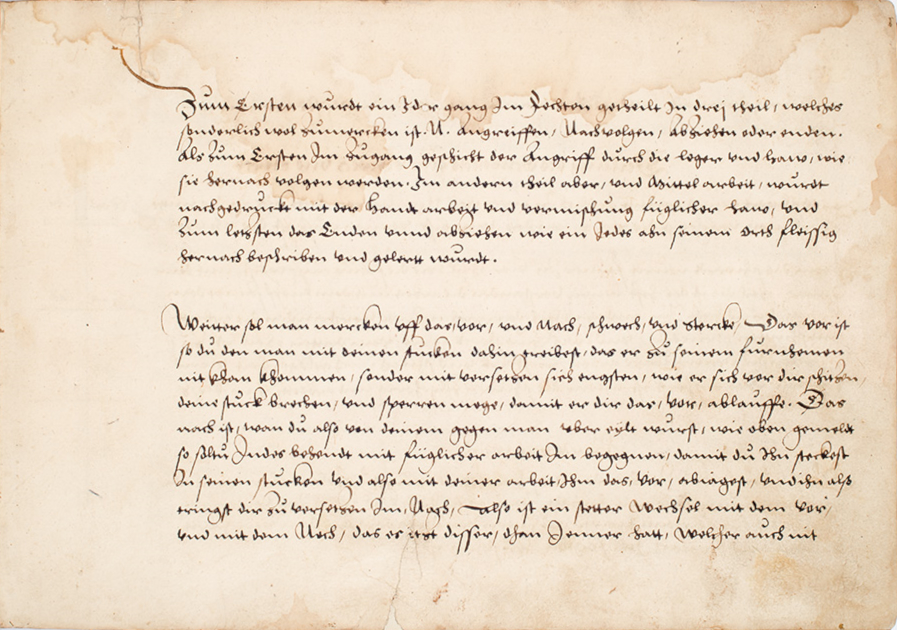 Zum Ersten wurdt ein Jder gang Im Fechten getheilt In drej theil, welches
sonderlich wol zumercken ist. N. Angreiffen, Nachvolgen, Abziehen oder enden.
Als zum Ersten Im zugang geschicht der Angriff durch die leger vnd haw, wie
sie hernach volgen werden. Im andern theil aber, vnd Mittel arbeit, wurdt
nachgedruckt mit der Handt arbeit vnd vermischung füglicher haw, vnd
Zum letzsten das Enden vnnd abziehen wie ein Jedes ahn seinem orth fleissig
hernach beschriben vnd gelertt wurdt.
Weitter sol man mercken vff das, vor, vnd Nach, schwech, vnd stercke, Das vor ist
so du den man mit deinen stucken dahin treibest, das er zu seinem furnhemen
nit khan khommen, sonder mit versetzen sich engsten, wie er sich vor dir schitzen,
deine stuck brechen, vnd sperren mege, damit er dir das, vor, ablauffe. Das
nach ist, wan du also von deinem gegen man vber eylt wurst, wie oben gemelt
so soltu Indes behendt mit füglicher arbeit Im begegnen, damit du Ihn steckest
In seinen stucken vnd also mit deiner arbeit Ihm das, vor, abiagest, vnd ihn also
tringst dir zu versetzen Im, Nach, also ist ein stetter wechsel mit dem vor,
vnd mit dem Nach, das es itzt disser, dhan Jenner hatt, Welcher auch nit